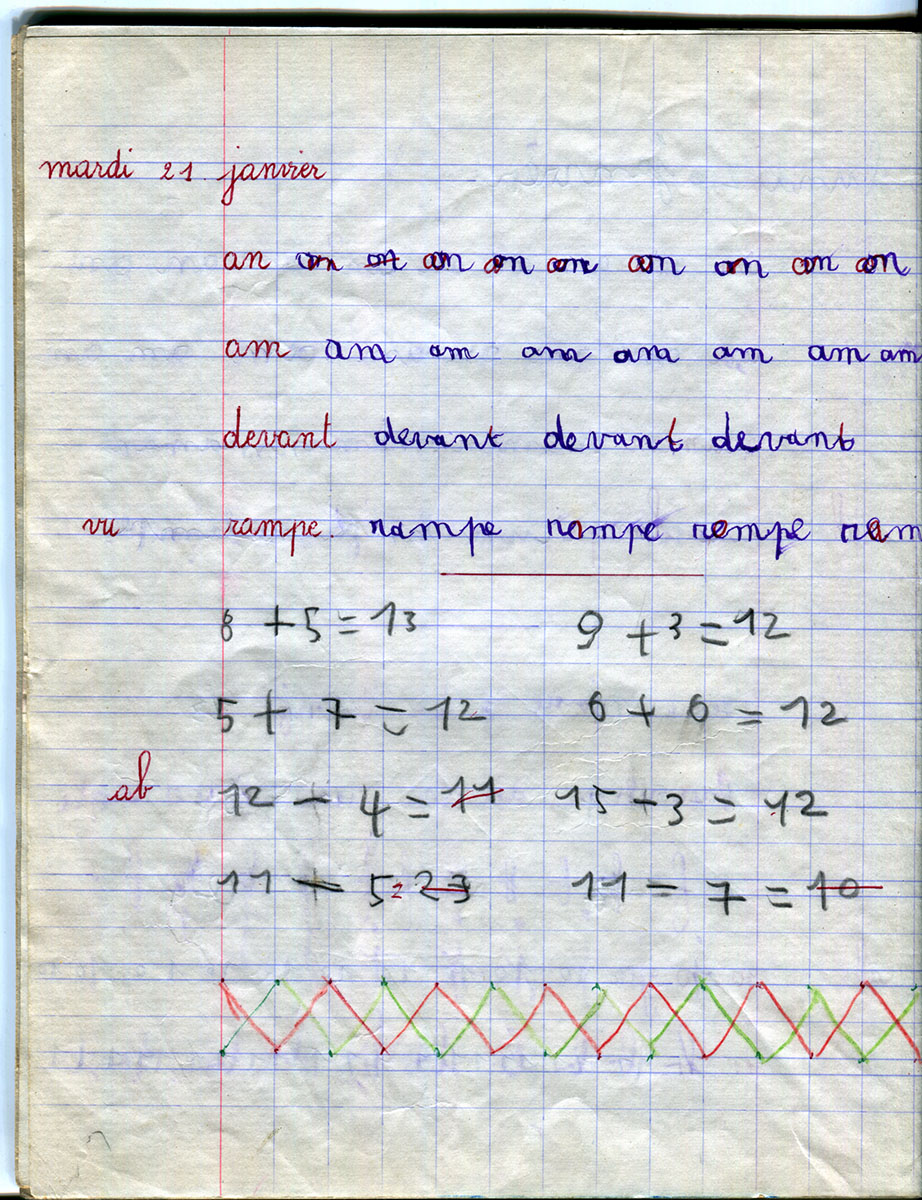 mardi 21 janvier
an an an an an an an an an an
am am am am am am am am
devant devant devant devant
vu rampe. rampe rampe rempe ram
8 + 5 = 13 9 + 3 = 12
5 + 7 = 12 6 + 6 = 12
ab 12 - 4 = 11 15 - 3 = 12
11 - 5 = 23 11 - 7 = 10